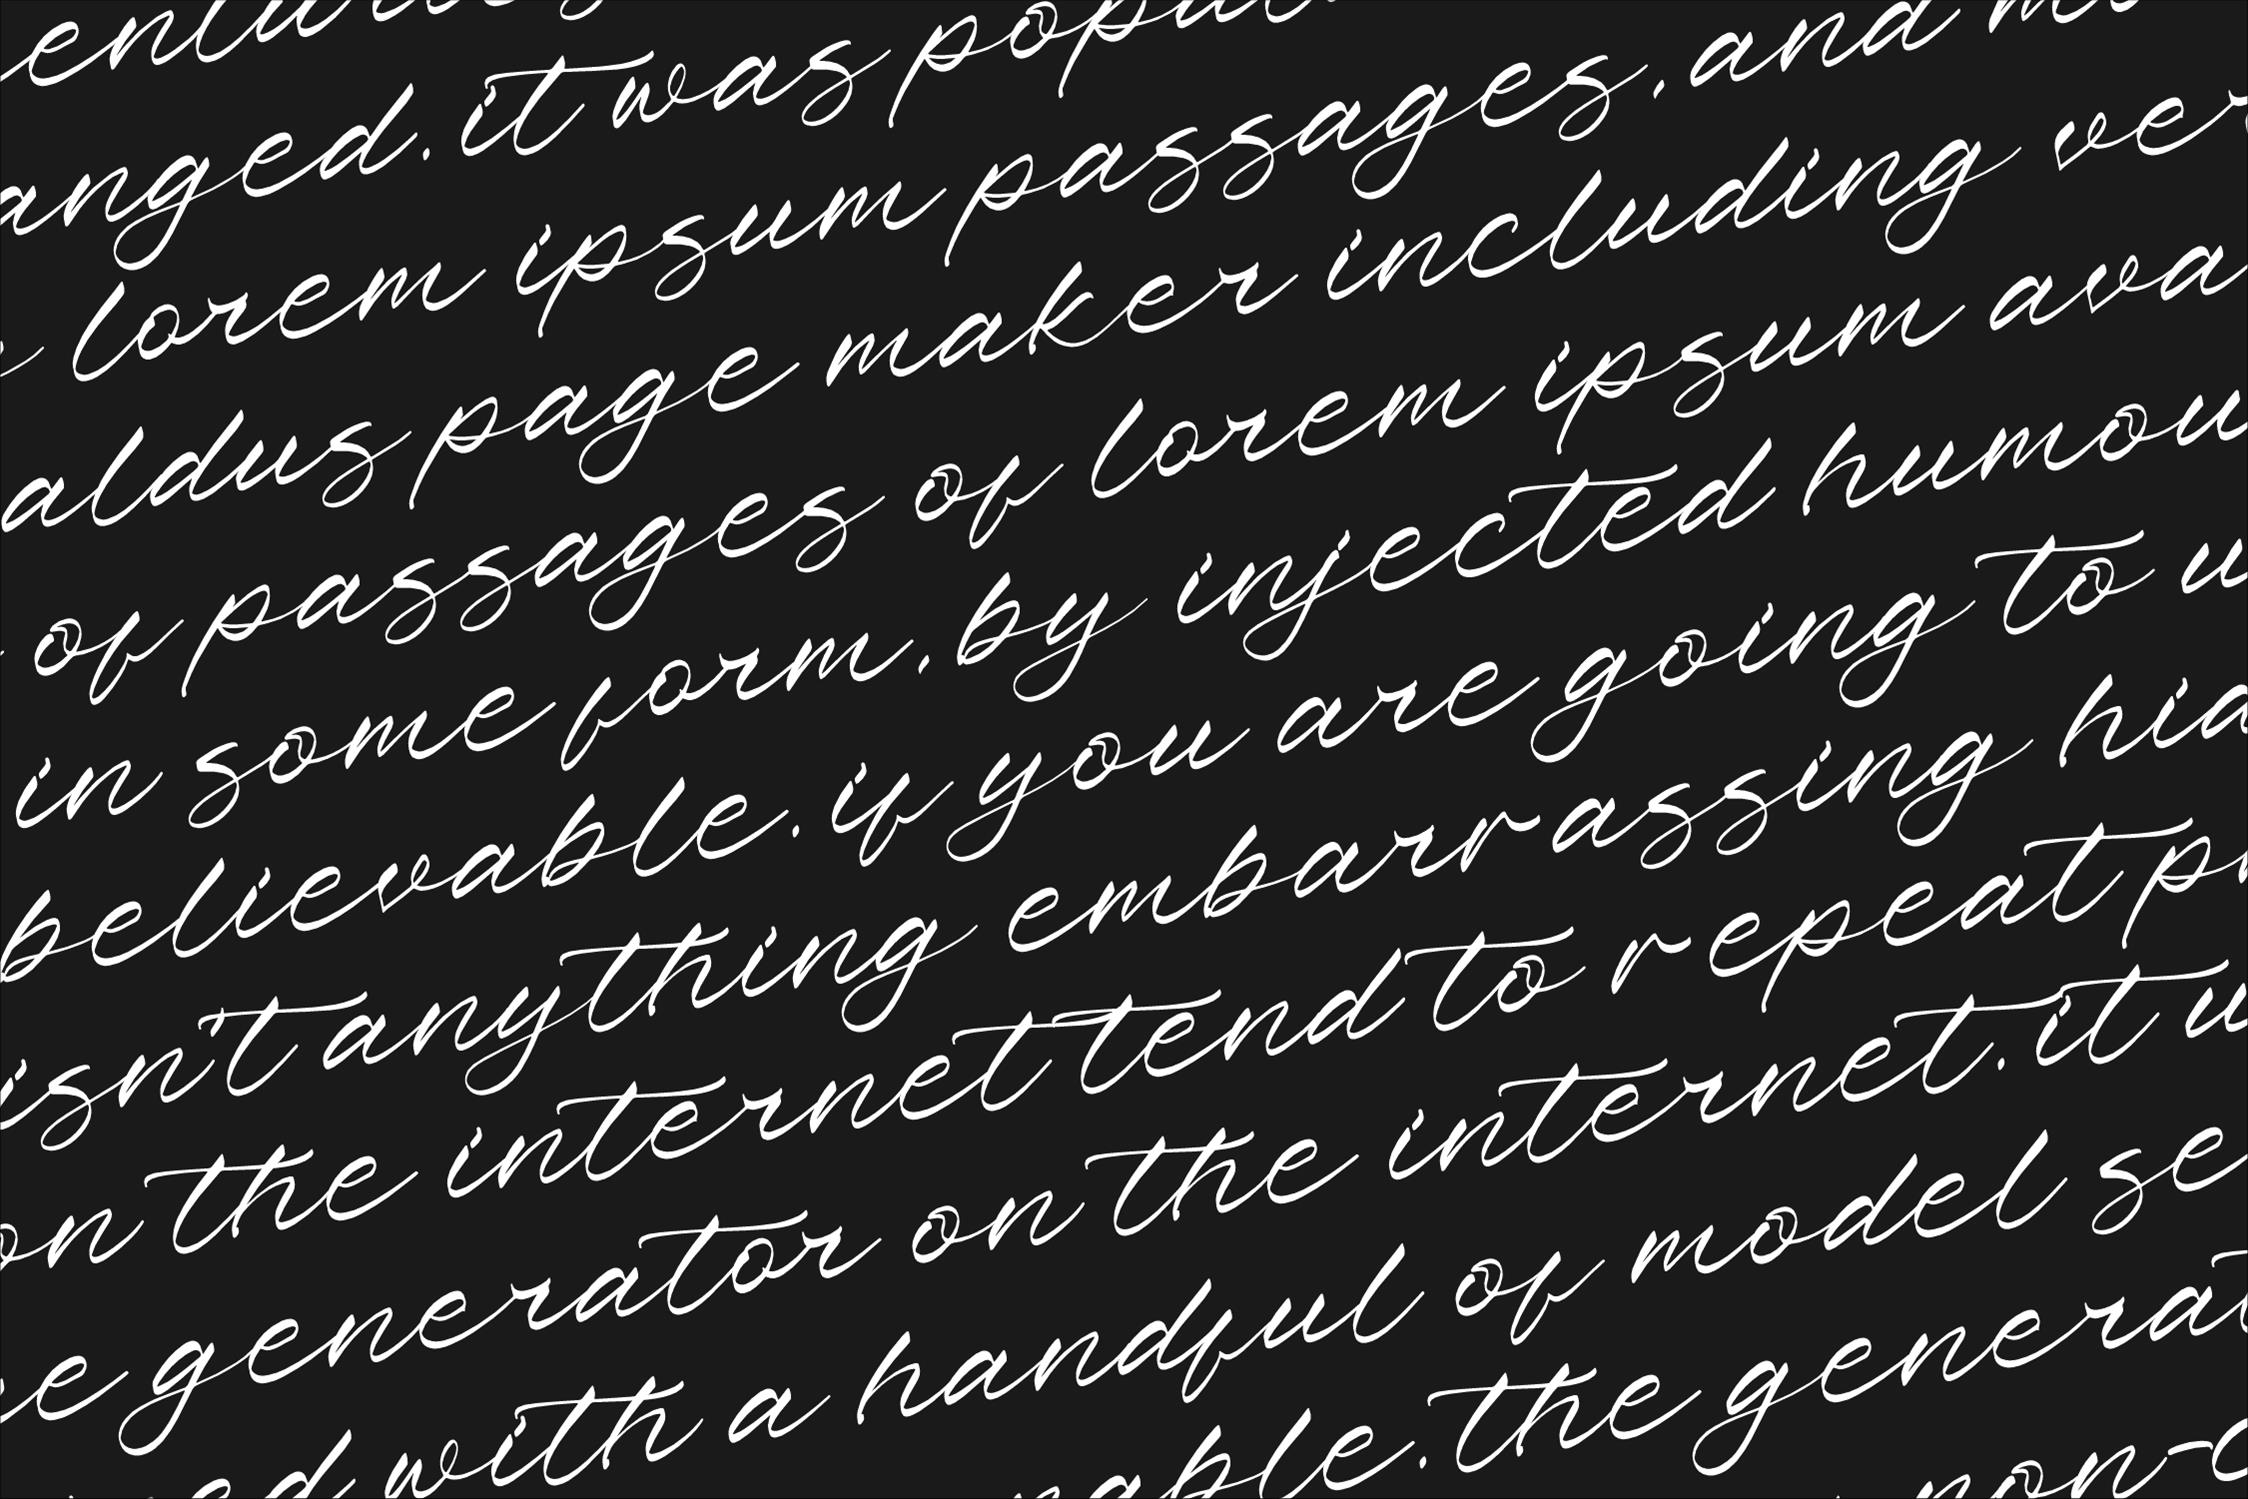 anged. it was popu
lorem ipsum passages, and m
aldus page maker including ver
of passages of lorem ipsum ava
in some form, by injected humou
believable. if you are going to u
isn't anything embarrassing hid
on the internet tend to repeat pr
e generator on the internet. it u
ed with a handful of model se
able. the generat
non-c